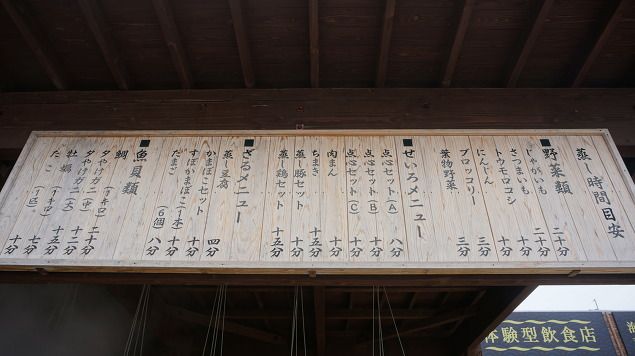 蒸し時間目安
■野菜類
じゃがいも 二十分
さつまいも 二十分
トウモロコシ 十分
にんじん 十分
ブロッコリー 三分
葉物野菜 三分
■せいろメニュー
点心セット(A) 八分
点心セット(B) 十分
点心セット(C) 十分
肉まん 十分
ちまき 十五分
蒸し豚セット 十分
蒸し鶏セット 十五分
■ざるメニュー
蒸し豆腐
かまぼこセット 四分
すぼかまぼこ1本 十分
たまご(6個) 八分
■魚貝類
鯛(1キロ) 二十分
夕やけガニ(中) 十二分
夕やけガニ(大) 十五分
牡蠣(1キロ) 七分
たこ(1匹) 十分
体験型飲食店